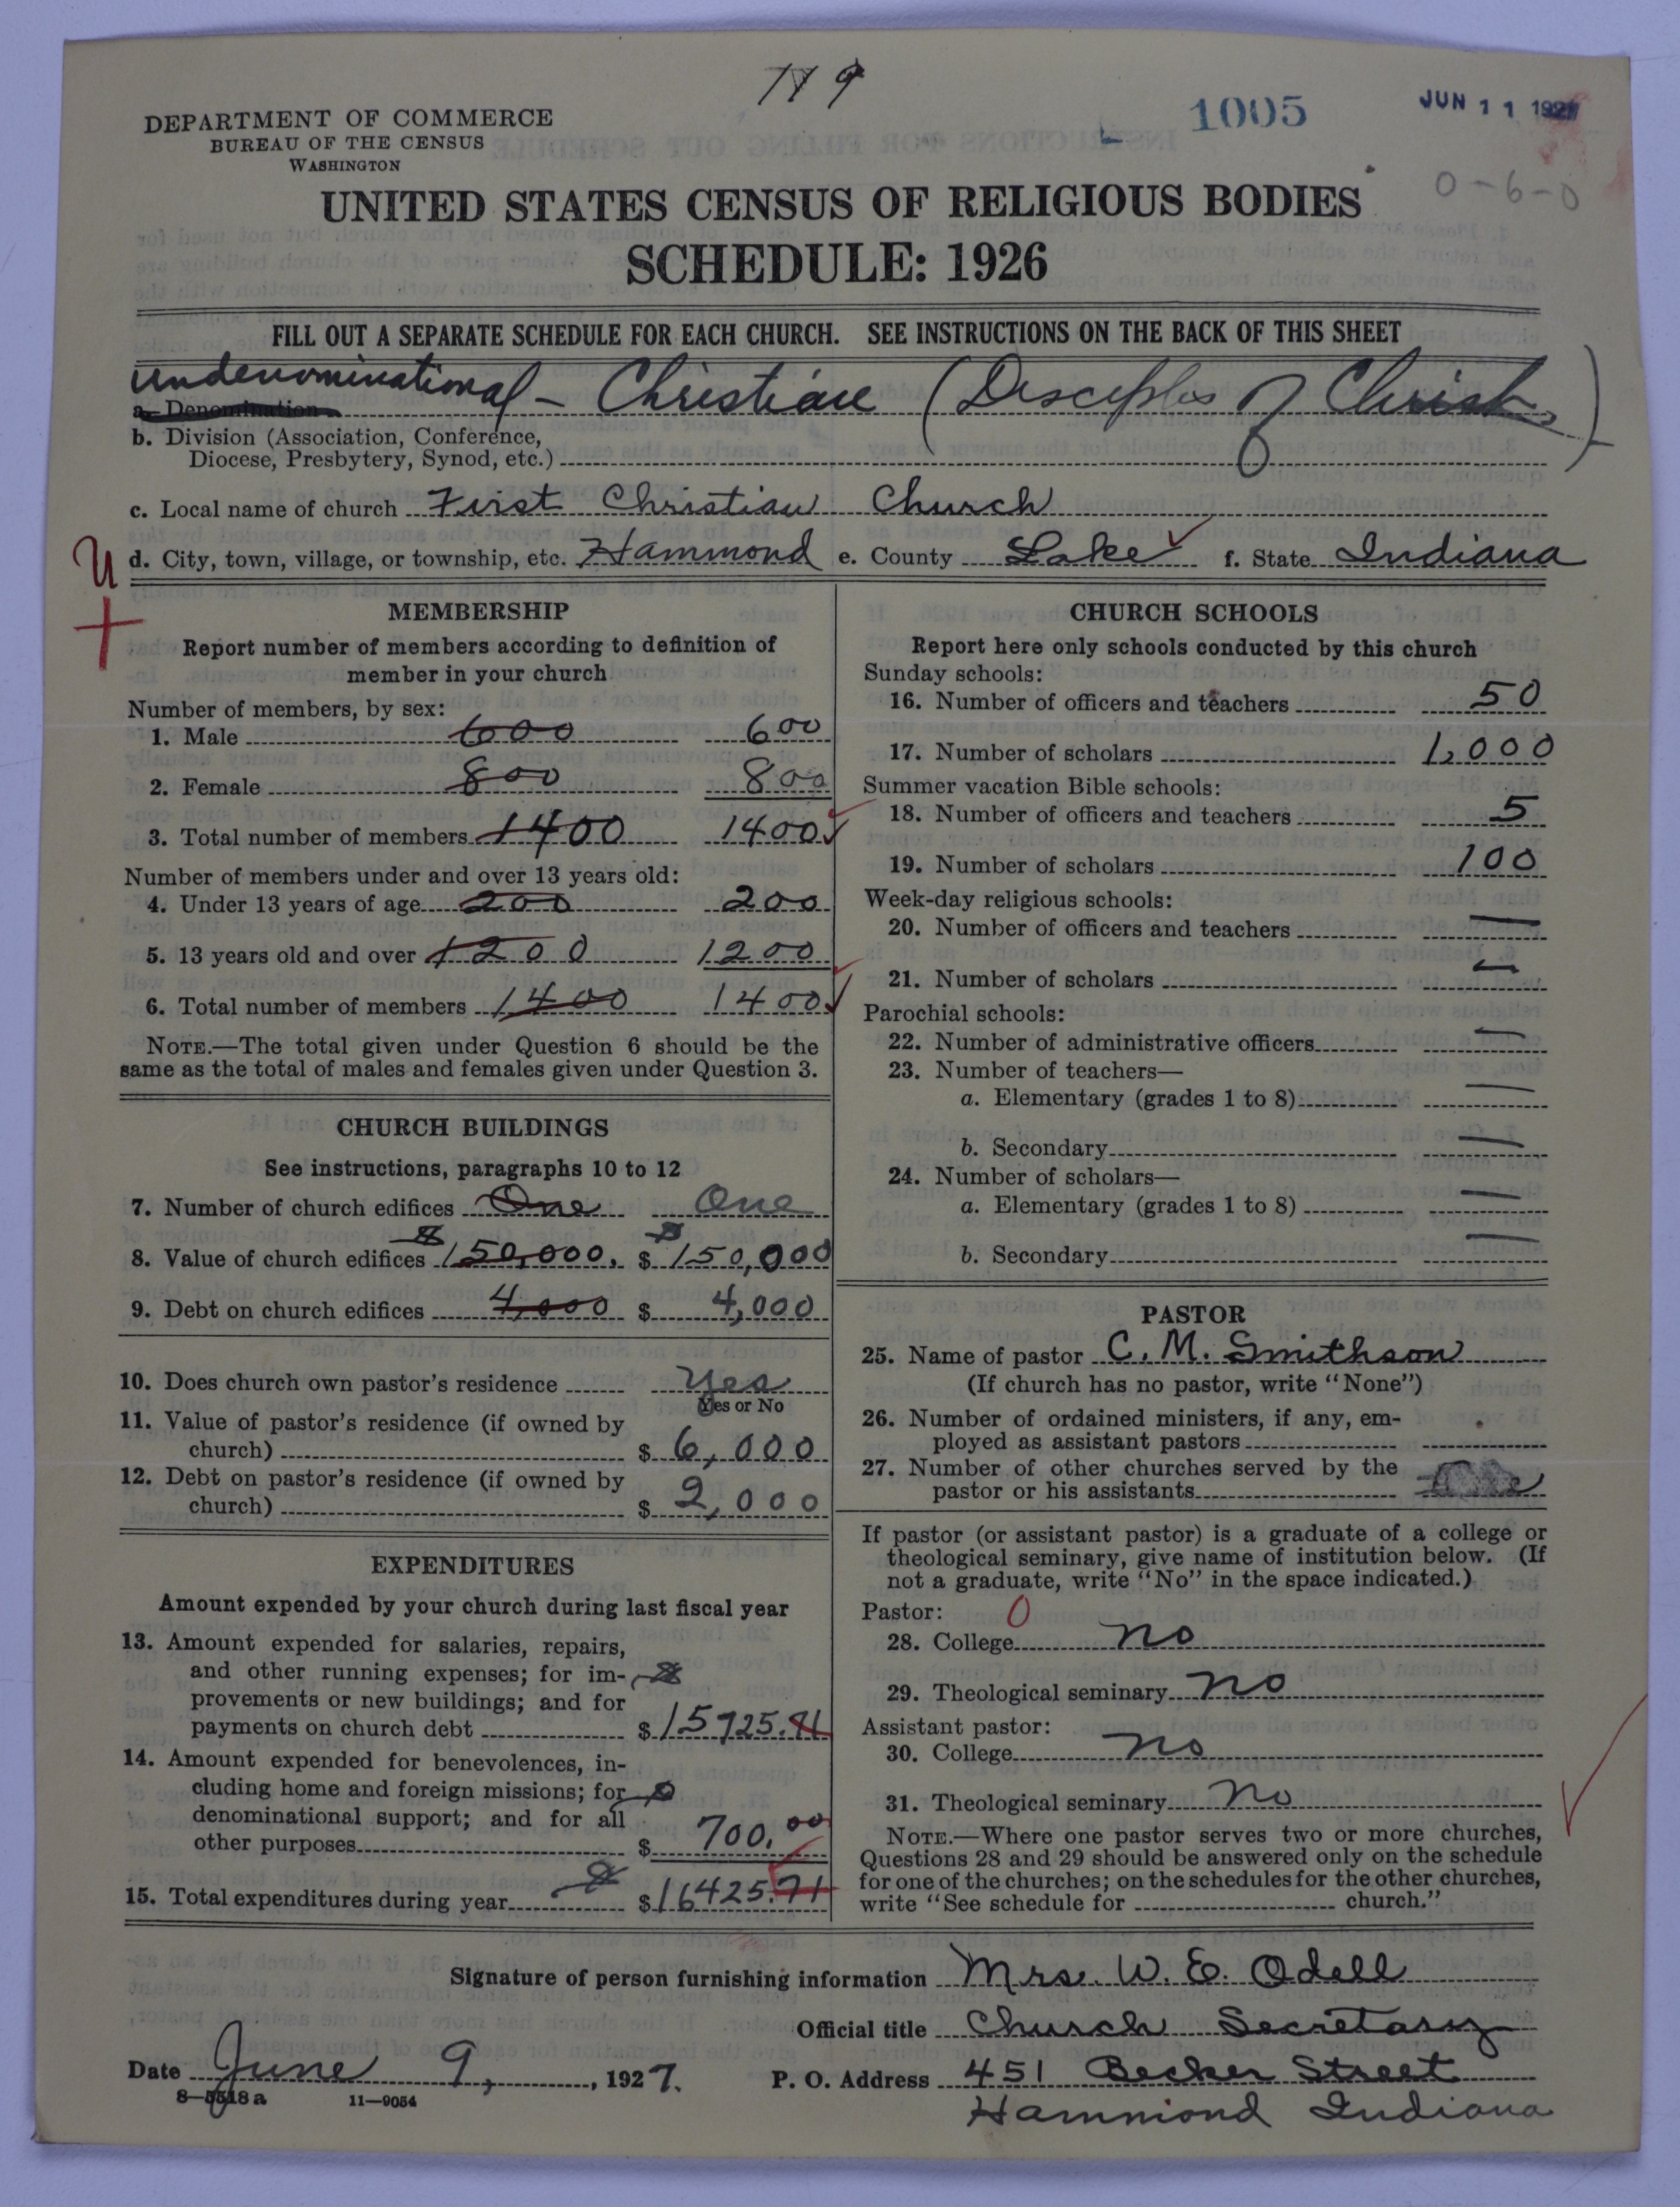 119
1005
JUN 11 1927
0-6-0
DEPARTMENT OF COMMERCE
BUREAU OF THE CENSUS
WASHINGTON
UNITED STATES CENSUS OF RELIGIOUS BODIES
SCHEDULE: 1926
FILL OUT A SEPARATE SCHEDULE FOR EACH CHURCH. SEE INSTRUCTIONS ON THE BACK OF THIS SHEET
undenominational - Christian (Disciples of Christ)
a. Denomination
b. Division (Association, Conference,
Diocese, Presbytery, Synod, etc.)
c. Local name of church First Christian Church
d. City, town, village, or township, etc. Hammond e. County Lake f. State Indiana
U
+
MEMBERSHIP
Report number of members according to definition of
member in your church
Number of members, by sex:
1. Male 600 600
2. Female 800 800
3. Total number of members 1400 1400
Number of members under and over 13 years old:
4. Under 13 years of age 200 200
5. 13 years old and over 1200 1200
6. Total number of members 1400 1400
NOTE.—The total given under Question 6 should be the
same as the total of males and females given under Question 3.
CHURCH BUILDINGS
See instructions, paragraphs 10 to 12
7. Number of church edifices One One
8. Value of church edifices $150,000. $150,000
9. Debt on church edifices 4,000 $ 4,000
10. Does church own pastor's residence Yes
Yes or No
11. Value of pastor's residence (if owned by
church) $ 6,000
12. Debt on pastor's residence (if owned by
church) $ 2,000
EXPENDITURES
Amount expended by your church during last fiscal year
13. Amount expended for salaries, repairs,
and other running expenses; for im-
provements or new buildings; and for
payments on church debt $15725.71
14. Amount expended for benevolences, in-
cluding home and foreign missions; for
denominational support; and for all
other purposes $ 700.00
15. Total expenditures during year $16425.71
CHURCH SCHOOLS
Report here only schools conducted by this church
Sunday schools:
16. Number of officers and teachers 50
17. Number of scholars 1,000
Summer vacation Bible schools:
18. Number of officers and teachers 5
19. Number of scholars 100
Week-day religious schools:
20. Number of officers and teachers —
21. Number of scholars —
Parochial schools:
22. Number of administrative officers —
23. Number of teachers—
a. Elementary (grades 1 to 8) —
b. Secondary —
24. Number of scholars—
a. Elementary (grades 1 to 8) —
b. Secondary —
PASTOR
25. Name of pastor C. M. Smithson
(If church has no pastor, write "None")
26. Number of ordained ministers, if any, em-
ployed as assistant pastors
27. Number of other churches served by the
pastor or his assistants
If pastor (or assistant pastor) is a graduate of a college or
theological seminary, give name of institution below. (If
not a graduate, write "No" in the space indicated.)
Pastor: 0
28. College no
29. Theological seminary no
Assistant pastor:
30. College no
31. Theological seminary no
NOTE.—Where one pastor serves two or more churches,
Questions 28 and 29 should be answered only on the schedule
for one of the churches; on the schedules for the other churches,
write "See schedule for church."
Signature of person furnishing information Mrs. W. E. Odell
Official title Church Secretary
Date June 9, 1927. P. O. Address 451 Becker Street
8—5518 a 11—9054
Hammond Indiana